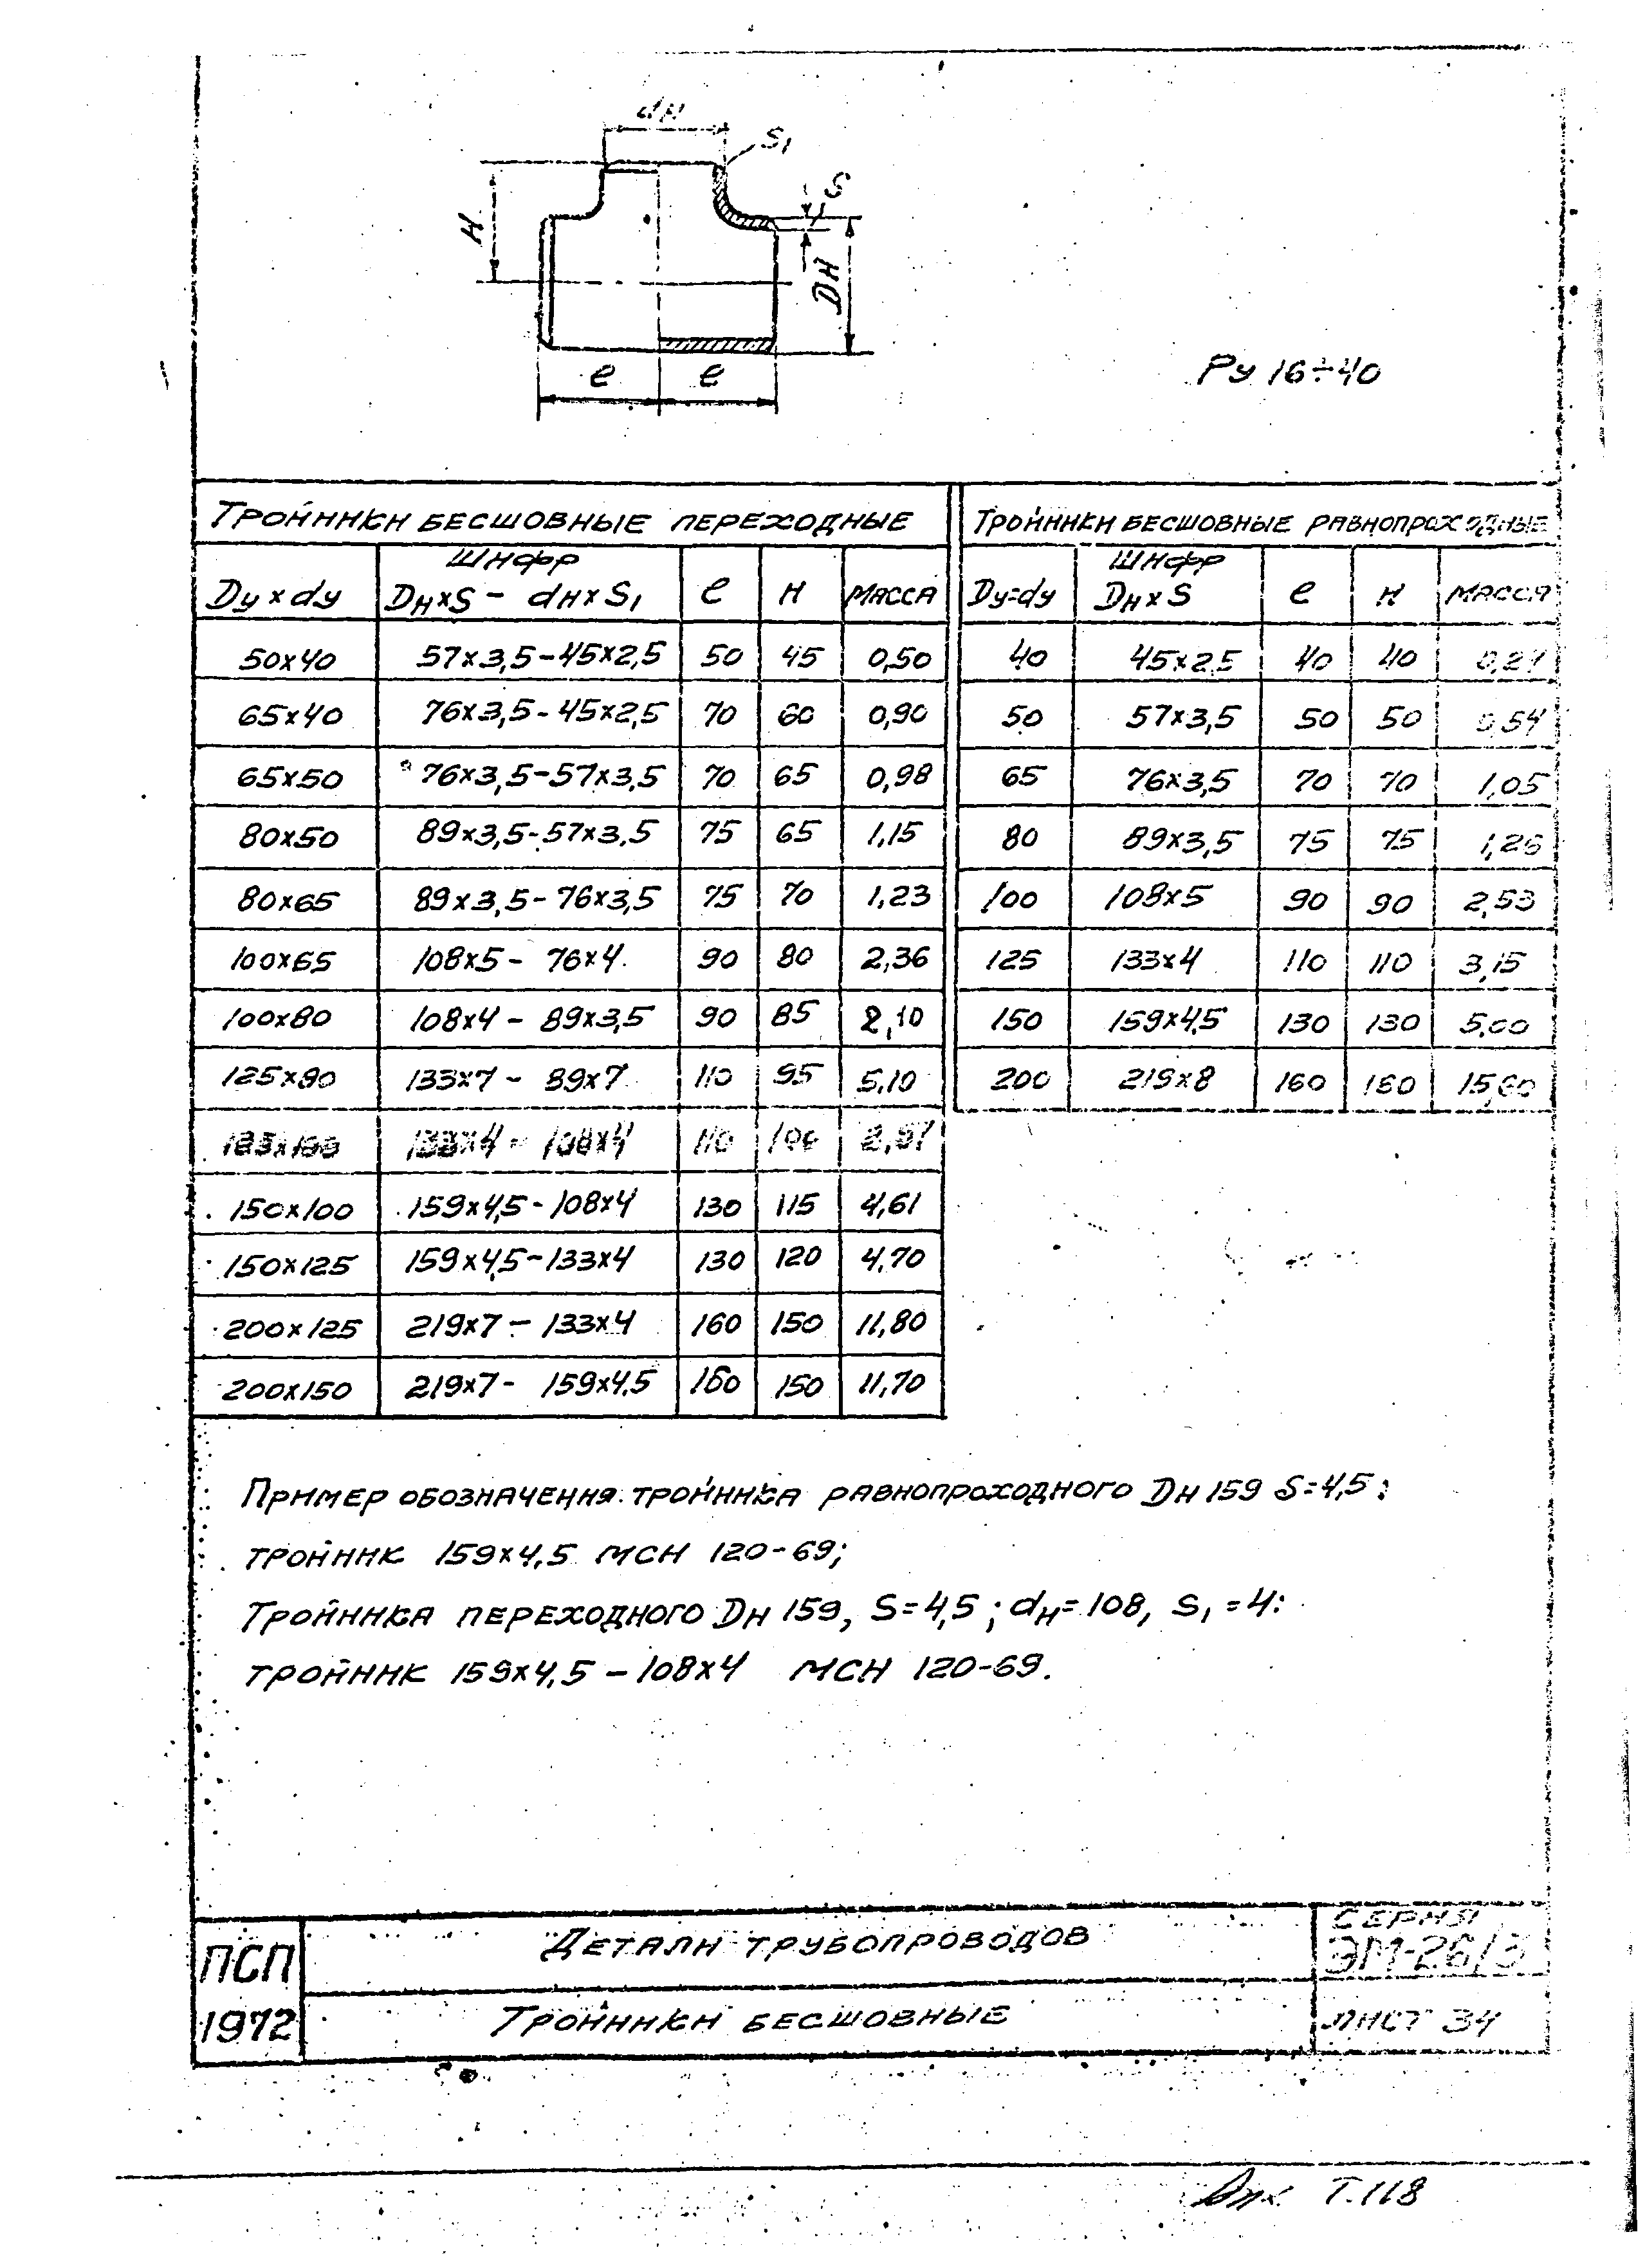 dн
S₁
S
H
Dн
ℓ ℓ
Ру 16÷40
Тройники бесшовные переходные
Dу×dу Шифр Dн×S – dн×S₁ ℓ H масса
50×40 57×3,5–45×2,5 50 45 0,50
65×40 76×3,5–45×2,5 70 60 0,90
65×50 76×3,5–57×3,5 70 65 0,98
80×50 89×3,5–57×3,5 75 65 1,15
80×65 89×3,5–76×3,5 75 70 1,23
100×65 108×5 – 76×4 90 80 2,36
100×80 108×4 – 89×3,5 90 85 2,10
125×80 133×7 – 89×7 110 95 5,10
133×4 – 108×4 110
150×100 159×4,5–108×4 130 115 4,61
150×125 159×4,5–133×4 130 120 4,70
200×125 219×7 – 133×4 160 150 11,80
200×150 219×7 – 159×4,5 160 150 11,70
Тройники бесшовные равнопроходные
Dу=dу Шифр Dн×S ℓ H масса
40 45×2,5 40 40
50 57×3,5 50 50 0,54
65 76×3,5 70 70 1,05
80 89×3,5 75 75 1,26
100 108×5 90 90 2,53
125 133×4 110 110 3,15
150 159×4,5 130 130 5,00
200 219×8 160 160 15,60
Пример обозначения тройника равнопроходного Dн 159 S=4,5:
тройник 159×4,5 МСН 120-69;
Тройника переходного Dн 159, S=4,5; dн=108, S₁=4:
тройник 159×4,5 – 108×4 МСН 120-69.
ПСП
1972
Детали трубопроводов
Тройники бесшовные
Серия
ЭМ-26/3
лист 34
Т.118